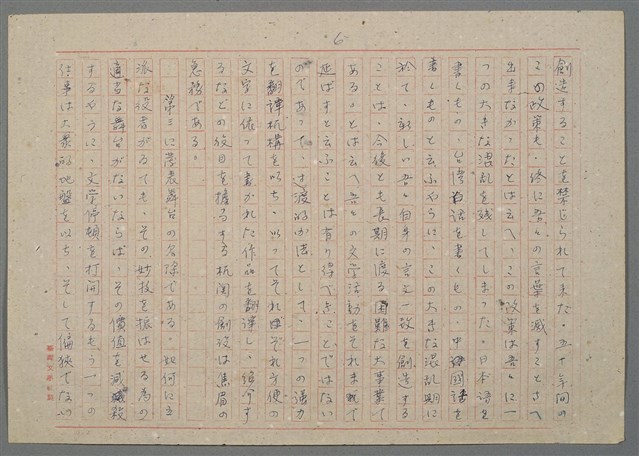 6
創造することを禁じられて来た。五十年間の
この政策も、終に吾々の言葉を滅すことさへ
出来なかつたとは云へ、この政策は吾々に一
つの大きな混乱を残してしまつた。日本語を
書くもの、台湾白話を書くもの、中国語を
書くものと云ふやうに、この大きな混乱期に
於て、新しい吾々自身の言文一致を創造する
ことは、今後とも長期に渡る困難な大事業で
ある。とは云へ吾々の文学活動をそれまで
延ばすと云ふことは有り得べきことではない
のであつた。過渡的方法として、一つの強力
な翻譯机構を以ち、以つてそれはそれぞれの
文字に依つて書かれた作品を翻譯し、紹介す
るなどの役目を擔当する机関の創設は焦眉の
急務である。
第三に発表舞台の欠除である。如何に立
派な役者がゐても、その妙技を振はせる為の
適当な舞台がないならば、その價値を減殺
するやうに、文学停頓を打開するもう一つの
仕事は大衆的地盤を以ち、そして偏狭でない